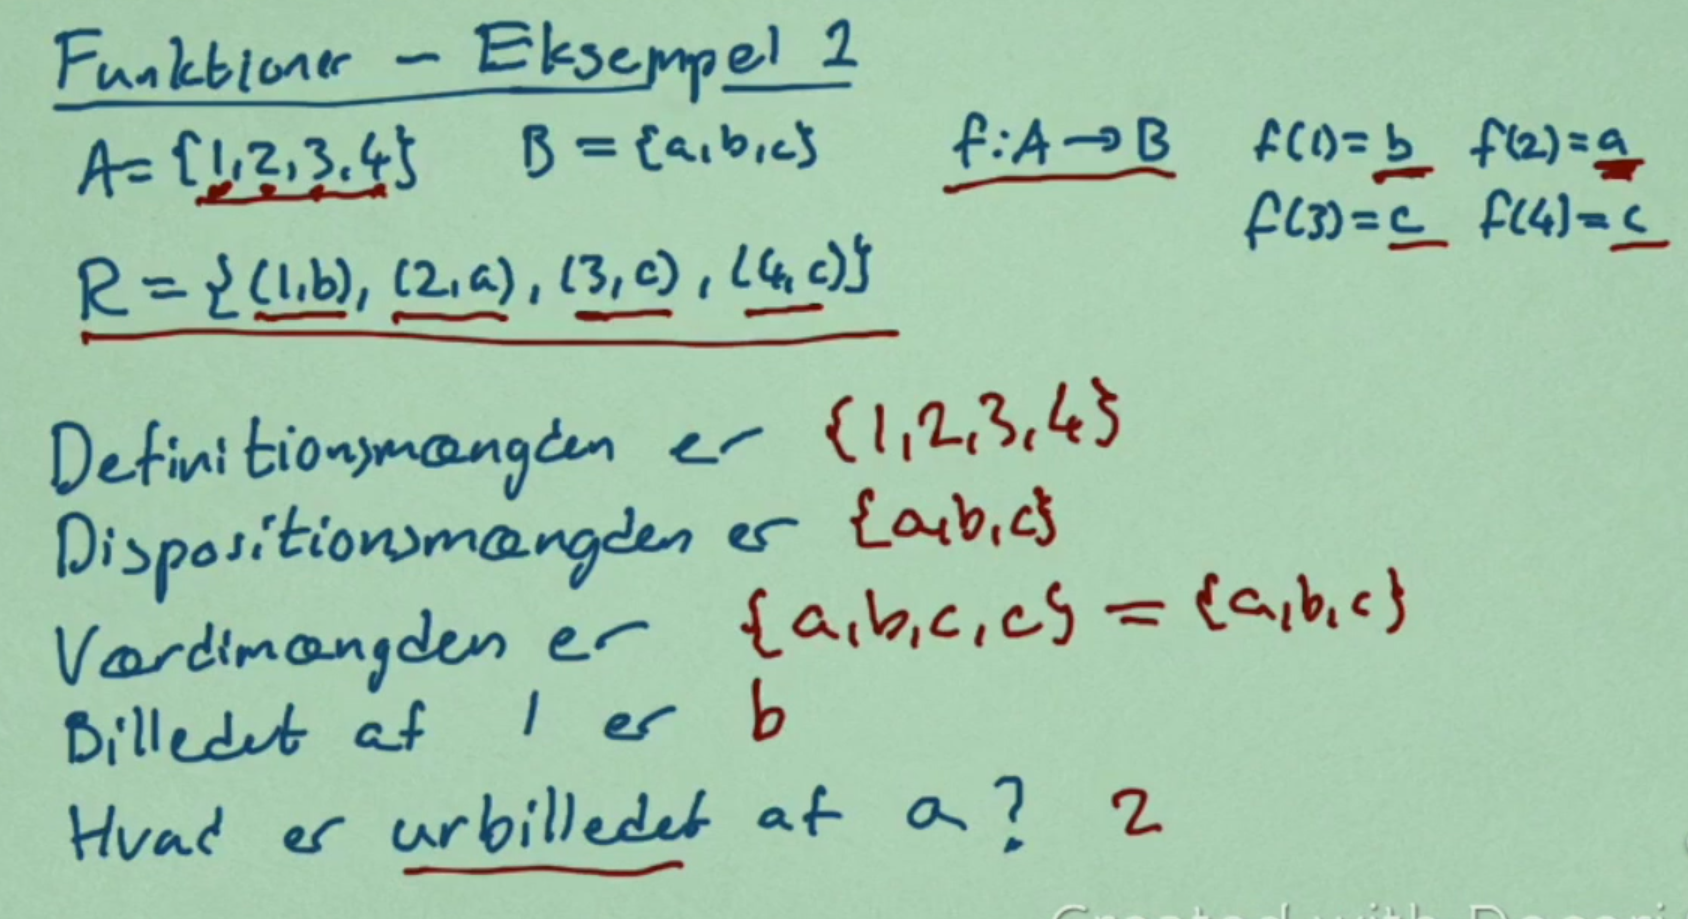 Funktioner - Eksempel 1
A = {1,2,3,4} B = {a,b,c} f:A→B f(1)=b f(2)=a
f(3)=c f(4)=c
R = {(1,b), (2,a), (3,c), (4,c)}
Definitionsmængden er {1,2,3,4}
Dispositionsmængden er {a,b,c}
Værdimængden er {a,b,c,c} = {a,b,c}
Billedet af 1 er b
Hvad er urbilledet af a? 2
Created with